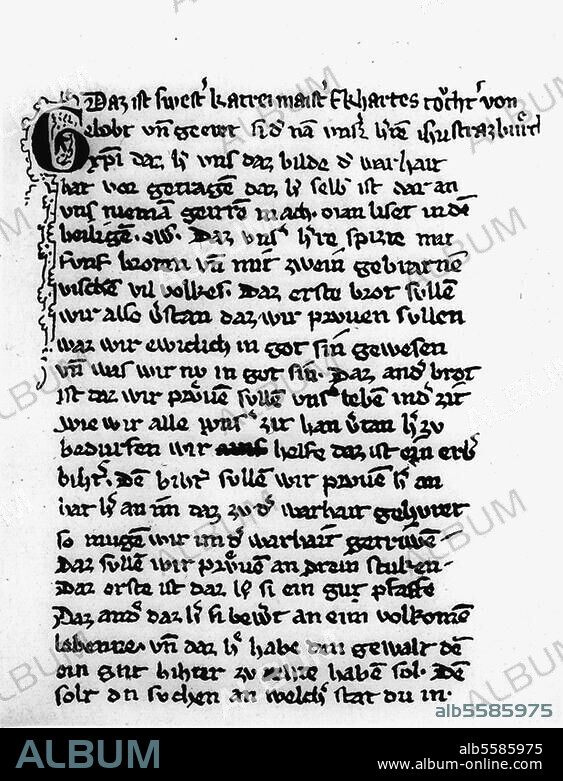 Daz ist swest' katrei maist' Ekhartes tőcht' von
Gelobt vn̄ geeret si d' nā vnsz h're ih'us
xp̄i daz h' vns daz bilde d' warhait
hat vor getragē daz h' selb ist dar an
vns niemā geirrē mach. Man liset in dē
heiligē. ew. Daz vns' h're spizte mit
fvnf broten vn̄ mit zwein gebratnē
vischē vil volkes. Daz erste brot svllē
wir also v'stan daz wir prvuen svllen
waz wir ewiclich in got sin gewesen
vn̄ was wir nv in got sin. Daz and' brot
ist daz wir prvuē svllē vns' lebē in d' zit
wie wir alle vns' zit han v'tan h' zv
bedurfen wir helfe daz ist ein erb'
biht'. Dē biht' svllē wir prvuen h' an
hat h' an im daz zv d' warhait gehvret
so mugē wir im d' warhait getrvwē
Daz svllē wir prvuen an drein stuken
Daz erste ist daz h' si ein gut pfaffe
Daz and' daz h' si bewert an eim volkomē
lebenne vn̄ daz h' habe den gewalt dē
ein gut bihter zv rehte haben sol. Dē
solt du suchen an welch' stat du in
ALBUM
alb5585975
ALBUM
alb5585975
www.album-online.com